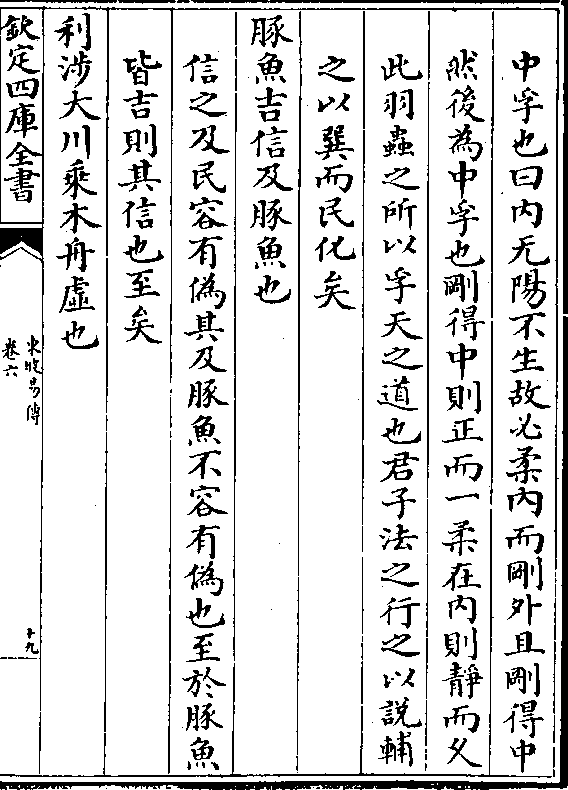 中孚也曰内无陽不生故必柔内而剛外且剛得中
然後為中孚也剛得中則正而一柔在内則靜而久
此羽蟲之所以孚天之道也君子法之行之以說輔
之以巽而民化矣
豚魚吉信及豚魚也
信之及民容有偽其及豚魚不容有偽也至於豚魚
皆吉則其信也至矣
利涉大川乘木舟虛也
欽定四庫全書
東坡易傳
卷六
十九